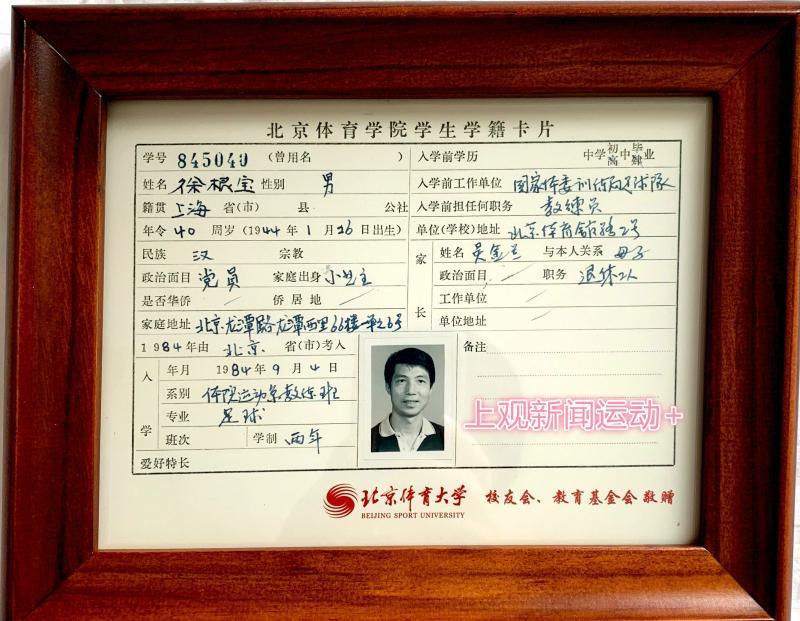 北京体育学院学生学籍卡片
学号 845040 (曾用名 ) 入学前学历 中学初高中毕肄业
姓名 徐根宝 性别 男 入学前工作单位 国家体委训练局足球队
籍贯 上海 省(市) 县 公社 入学前担任何职务 教练员
年令 40 周岁 (1944年1月16日出生) 单位(学校)地址 北京体育馆路2号
民族 汉 宗教 家长 姓名 吴金兰 与本人关系 母子
政治面目 党员 家庭出身 小业主 政治面目 职务 退休工人
是否华侨 侨居地 工作单位
家庭地址 北京龙潭路龙潭西里66楼一单元6号 单位地址
1984年由 北京 省(市)考入 备注
入学 年月 1984年9月4日
系别 体院运动系教练班
专业 足球
班次 学制 两年
爱好特长
上观新闻运动+
北京体育大学 校友会、教育基金会敬赠
BEIJING SPORT UNIVERSITY